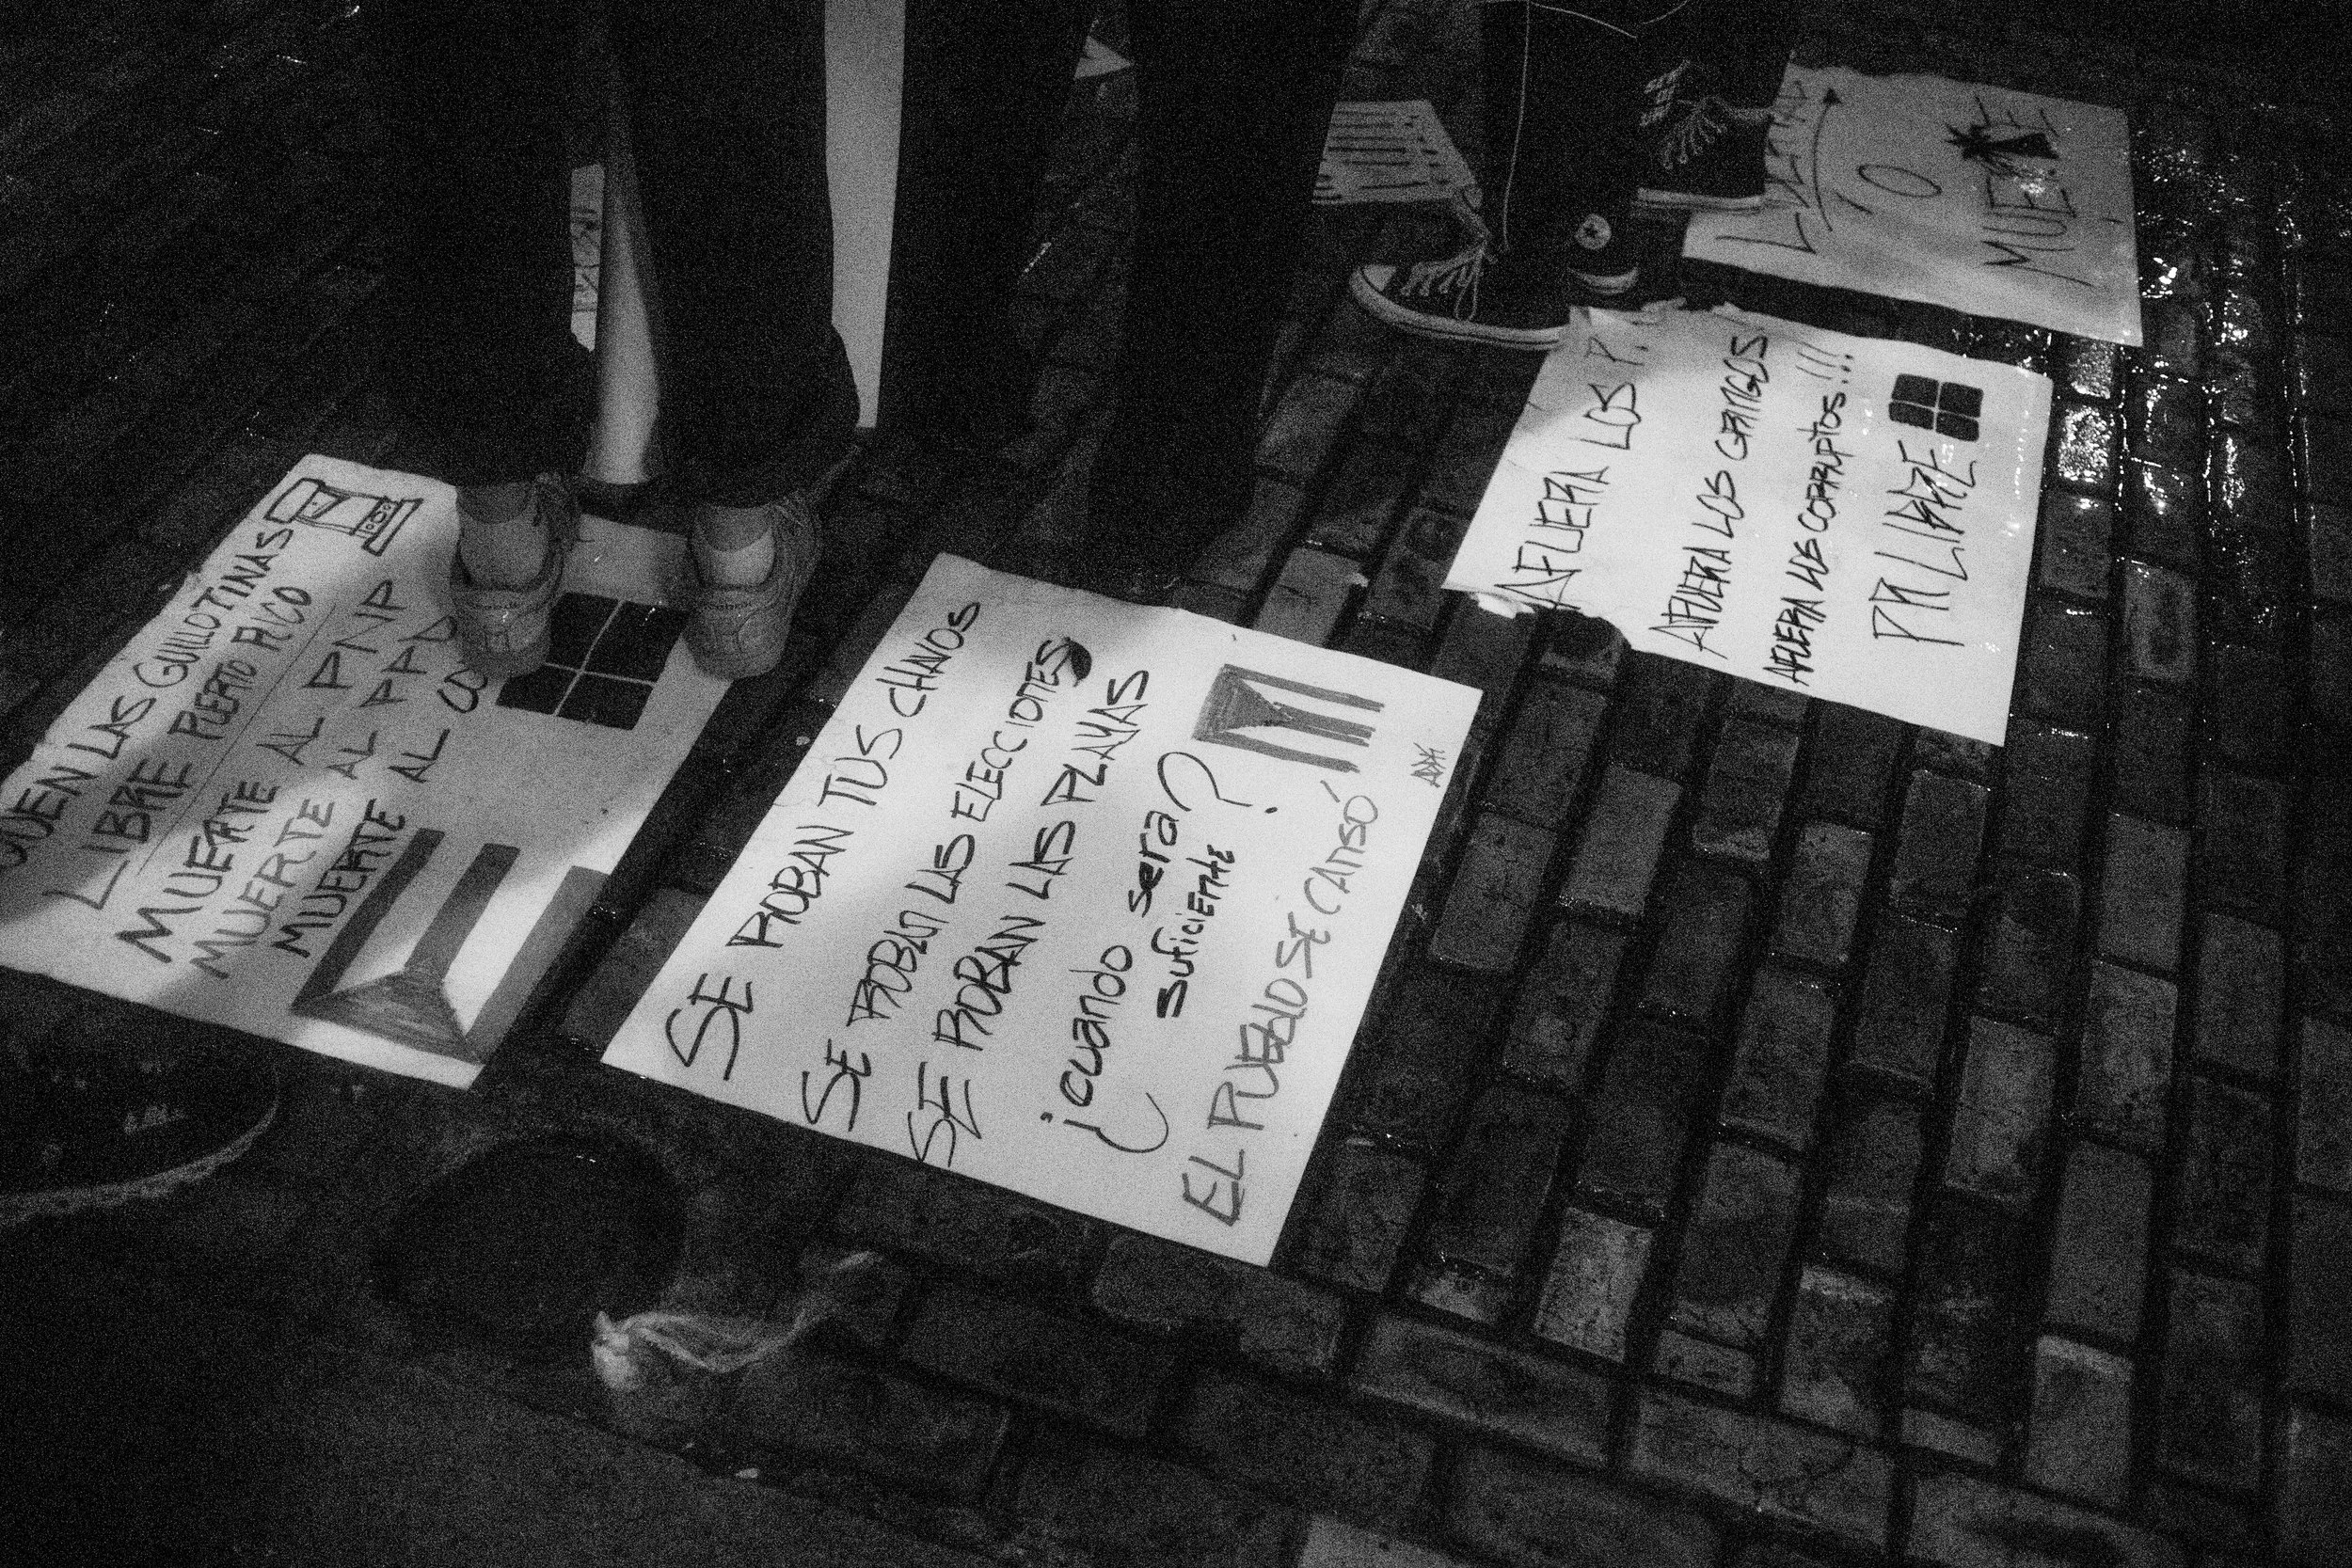 LAS GUILLOTINAS
LIBRE PUERTO RICO
MUERTE AL PNP
MUERTE AL PPD
MUERTE AL
SE ROBAN TUS CHAVOS
SE ROBAN LAS ELECCIONES
SE ROBAN LAS PLAYAS
¿cuando sera?
suficiente
EL PUEBLO SE CANSÓ
AFUERA LOS
AFUERA LOS GRINGOS
AFUERA LOS CORRUPTOS!!!
PR LIBRE
O